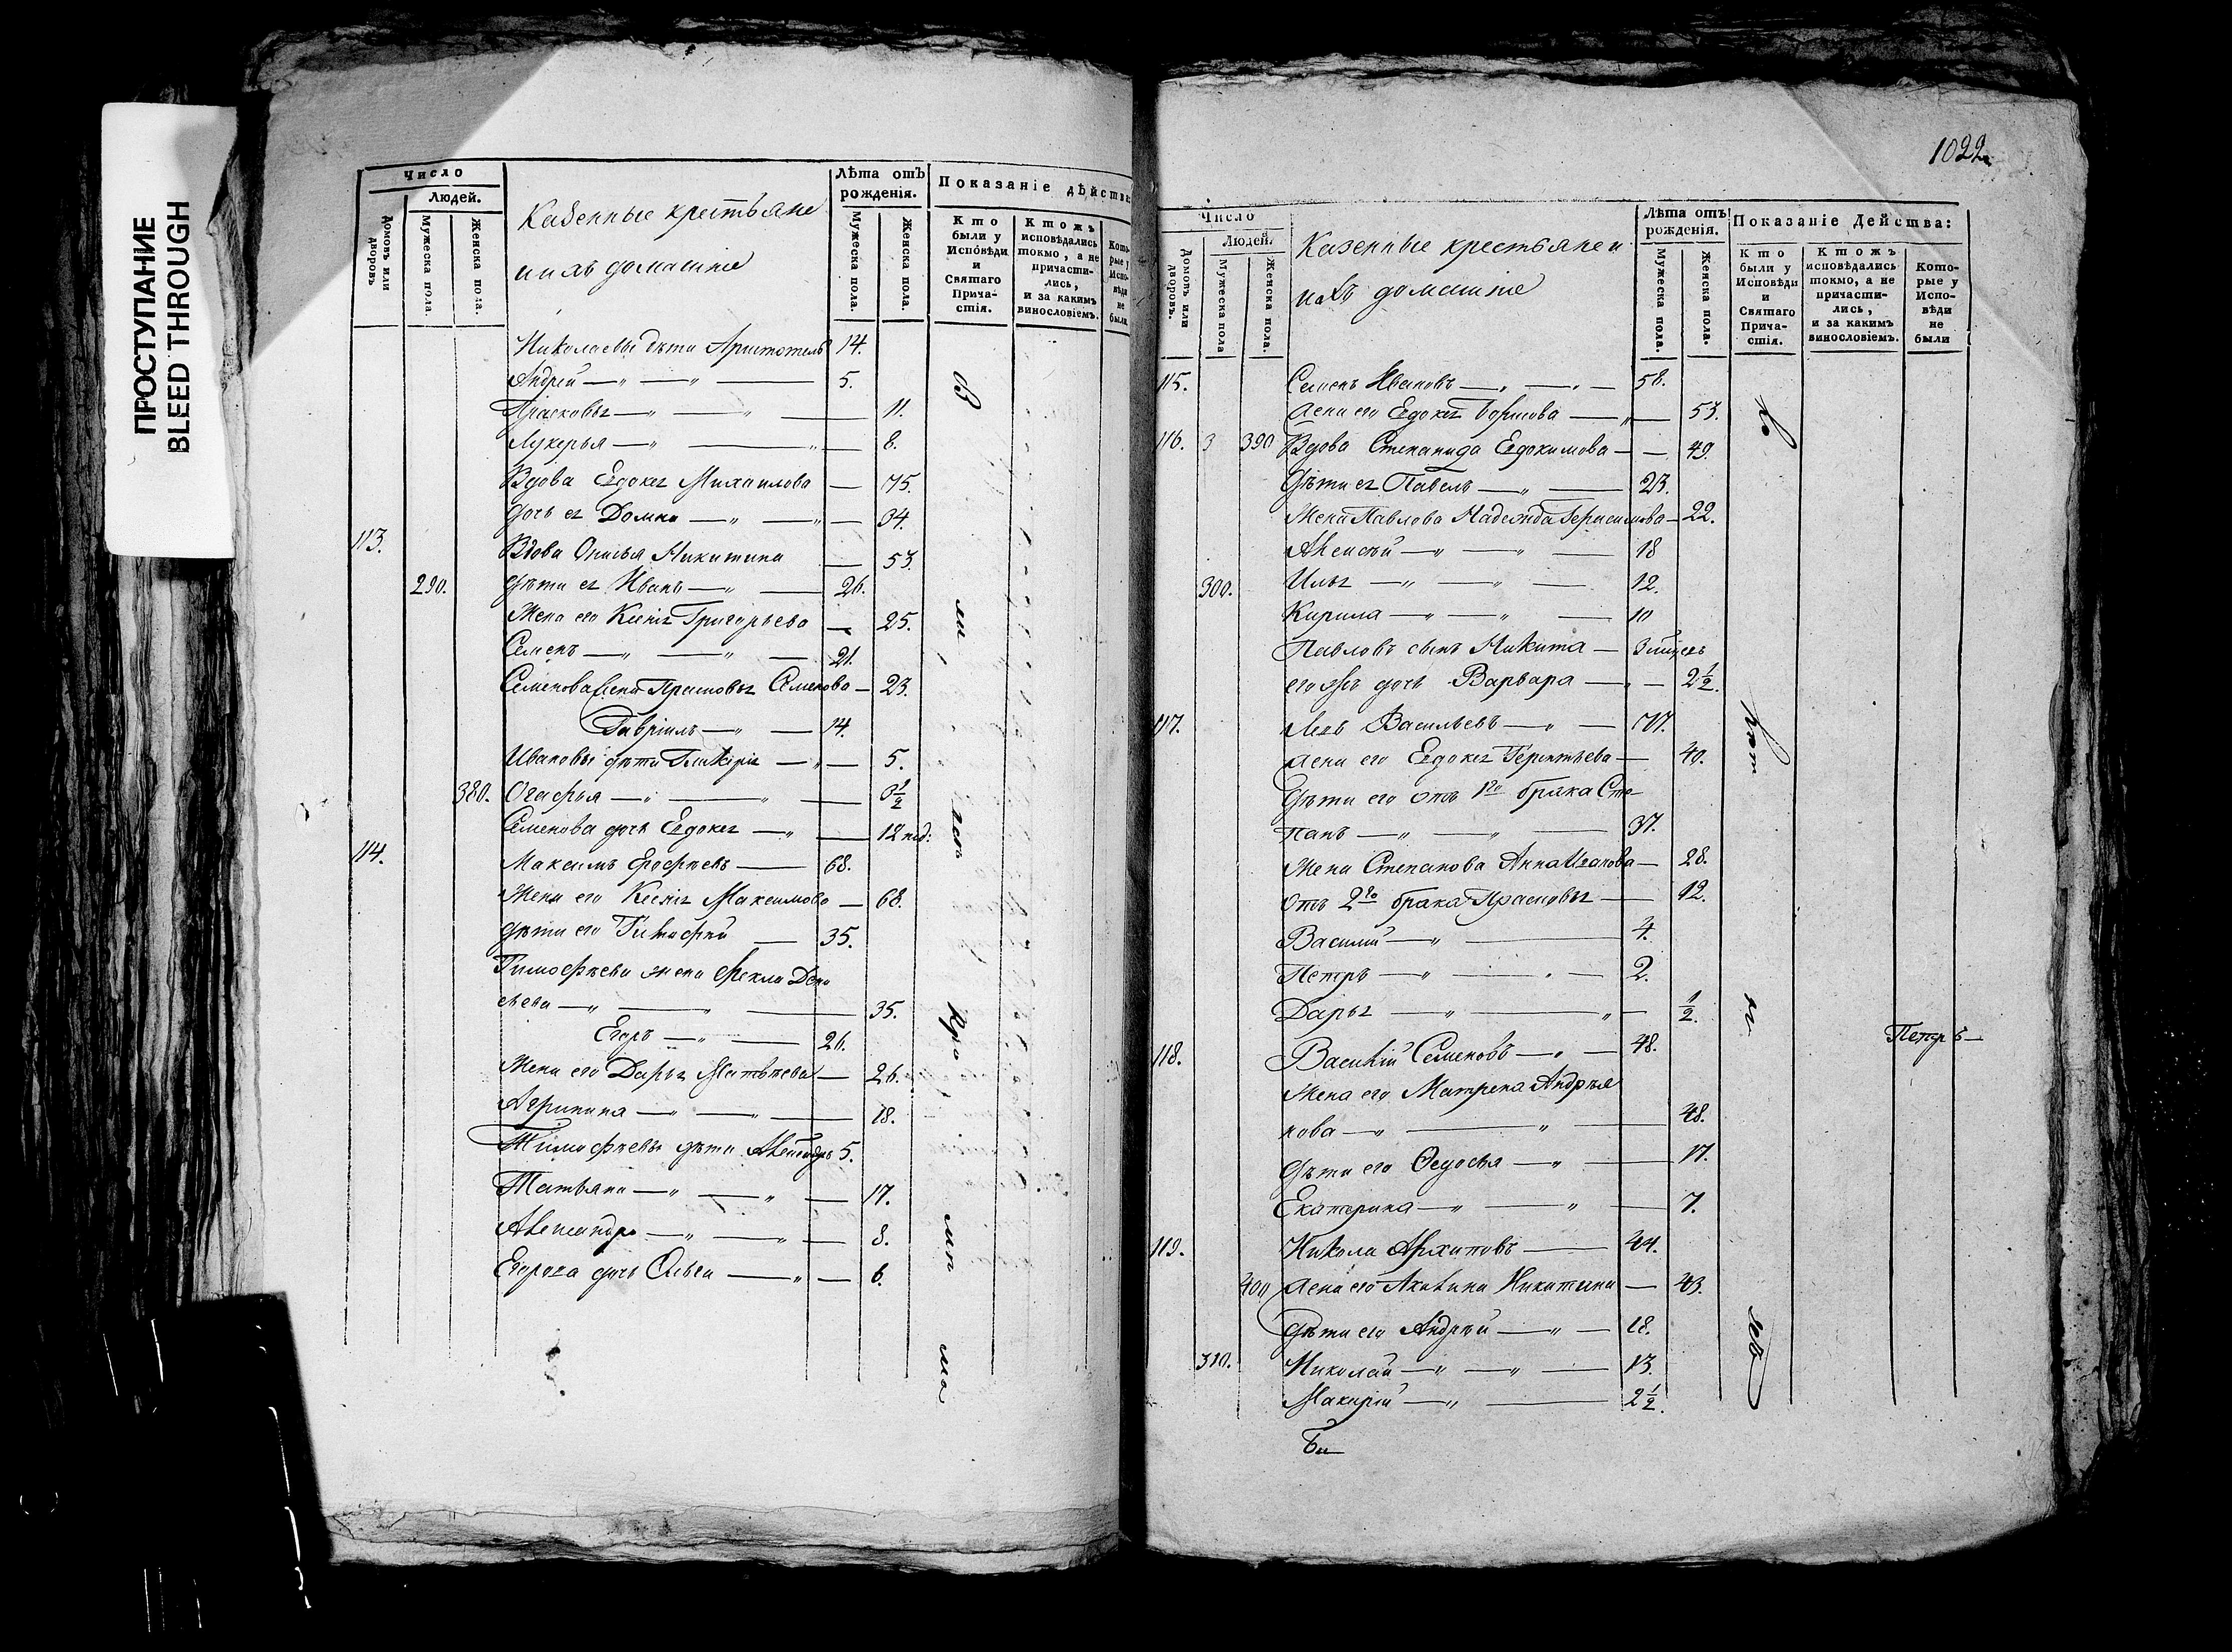 ПРОСТУПАНИЕ
BLEED THROUGH
Число
Людей.
Домовъ или дворовъ
Мужеска пола.
Женска пола.
Казенные крестьяне
и ихъ домашніе
Лѣта отъ рожденія.
Мужеска пола.
Женска пола.
Показаніе дѣйства
Кто были у Исповѣди и Святаго Прича-стія.
Ктожъ исповѣдались токмо, а не причасти-лись, и за какимъ винословіемъ.
Кото-рые у Испо-вѣди не были
Николаевы дѣти 14.
Андрей 5.
Прасковья 11.
Лукерья 8.
Вдова Евдокея Михаилова 75.
дочь ея Домна 34.
113. Вдова Никитина 53.
290. дѣти ея Иванъ 26.
Жена его Ксенія Григорьева 25.
Семенъ 21.
Семенова жена Прасковья Семенова 23.
Гавріилъ 14.
Ивановы дѣти Гликерія 5.
380. Огафья
Семенова дочь Евдокея 12 нед:
114. Максимъ Ерофѣевъ 68.
Жена его Ксенія Максимова 68.
дѣти его Тимофей 35.
Тимофѣева жена Фекла Дени
сьева 35.
Егоръ 26.
Жена его Дарья Матвѣева 26.
Агрипина 18.
Тимофѣевы дѣти Александръ 5.
Татьяна 17.
Александра 8.
Егорова дочь Ольга 6.
1022
Число
Людей.
Домовъ или дворовъ.
Мужеска пола
Женска пола.
Казенные крестьяне и
ихъ домашніе
Лѣта отъ рожденія.
Мужеска пола.
Женска пола.
Показаніе Действа:
Кто были у Исповѣди и Святаго Прича-стія.
Ктожъ исповѣдались токмо, а не причасти-лись, и за какимъ винословіемъ.
Кото-рые у Испо-вѣди не были
115. Семенъ Ивановъ 58.
жена его Евдокея Борисова 53.
116. 3 390 Вдова Степанида Евдокимова 49.
Дѣти ея Павелъ 23.
Жена Павлова Надежда Герасимова 22.
Алексѣй 18
300. Илья 12.
Кирила 10
Павловъ сынъ Никита
его же дочь Варвара 2 1/2.
117. Левъ Васильевъ 77.
жена его Евдокея Терентьева 40.
Дѣти его отъ 1го брака Сте
панъ 37.
Жена Степанова Анна 28.
отъ 2го брака Прасковья 12.
Василій 4.
Петръ 2.
Дарья 1/2.
Петръ
118. Василій Семеновъ 48.
Жена его Матрена Андрея
нова 48.
Дѣти его Ѳедосья 17.
Екатерина 7.
119. Никола Архиповъ 44.
400 жена его Акилина Никитина 43.
Дѣти его Андрѣй 18.
310. Николай 13.
Макарій 2 1/2.